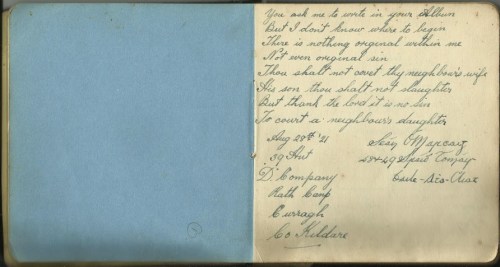 You ask me to write in your Album
But I don't know where to begin
There is nothing original within me
Not even original sin
Thou shalt not covet thy neighbour's wife
His son thou shalt not slaughter
But thank the lord it is no sin
To court a neighbour's daughter
Aug 28th '21
39 Hut
"D" Company
Rath Camp
Curragh
Co Kildare
Seán